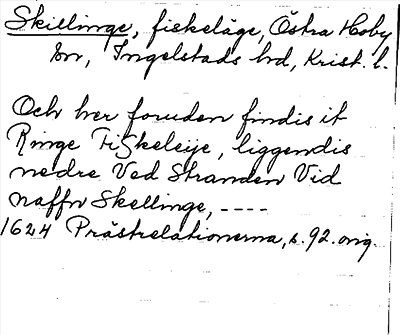 Skillinge, fiskeläge, Östra Hoby
sn, Ingelstads hd, Krist. l.
Och her foruden findis it
Ringe FiSkeleije, liggendis
nedre Ved Stranden Vid
naffn Skellinge, ----
1624 Prästrelationerna, s. 92. orig.